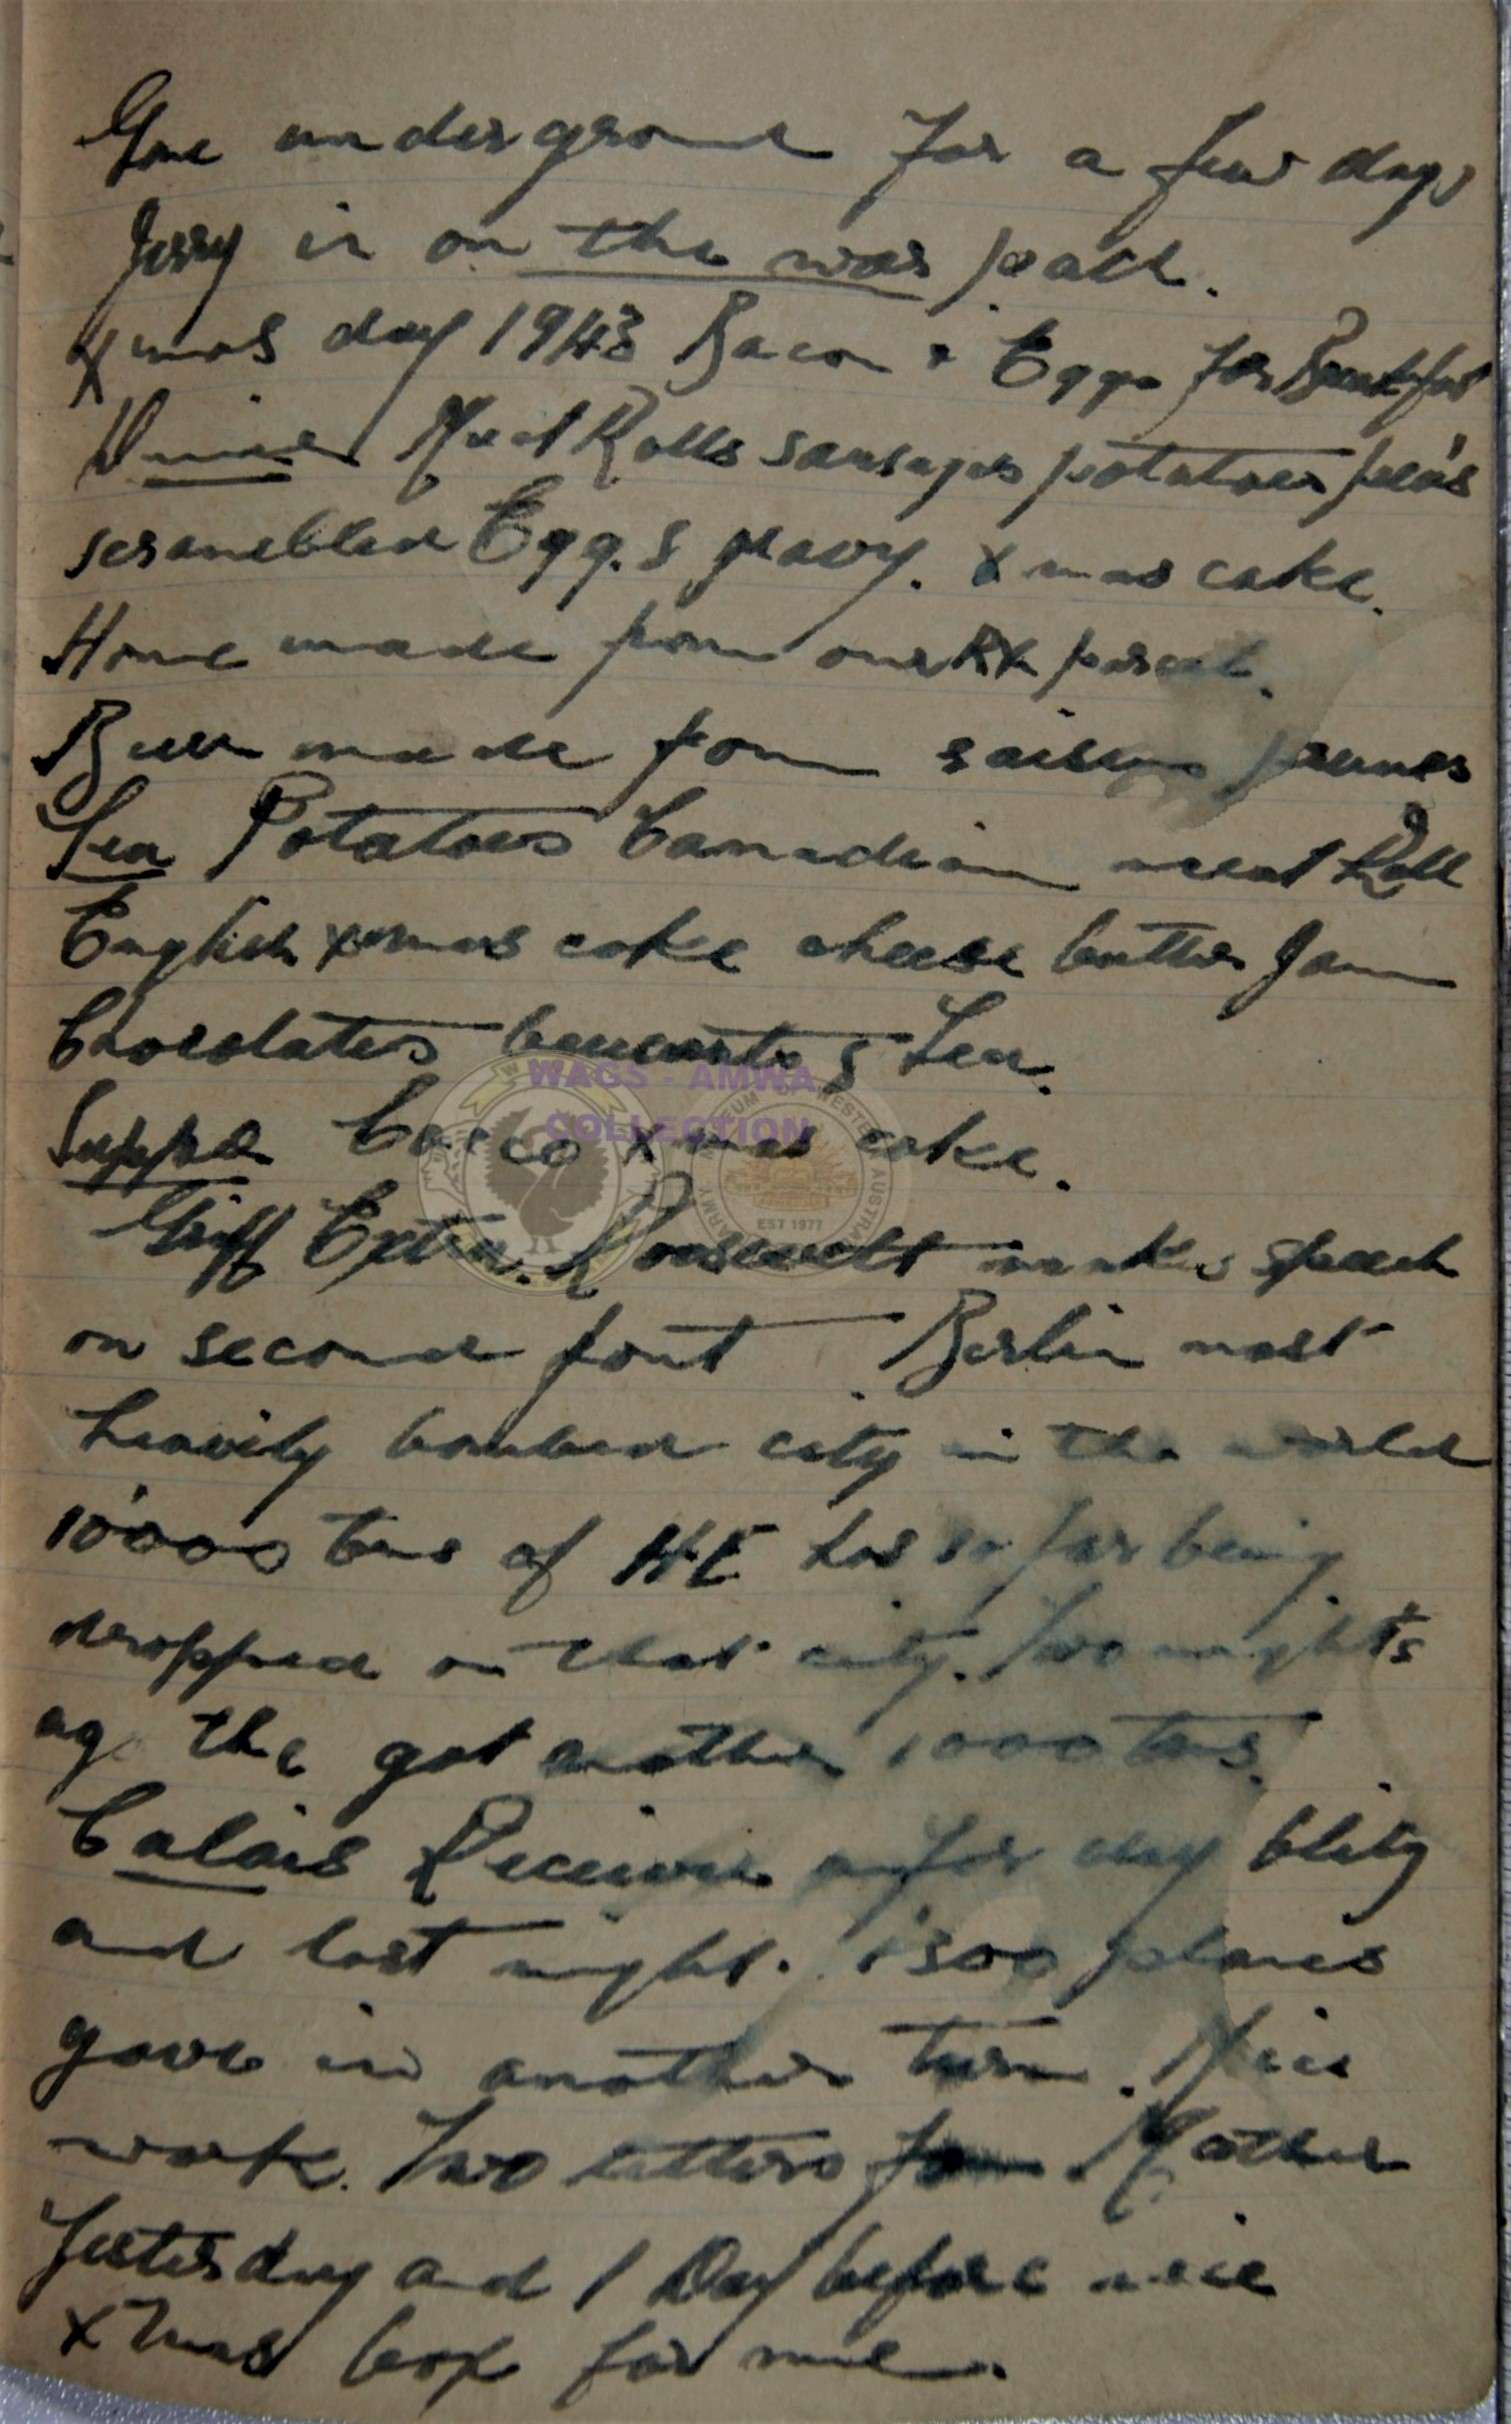 Gone underground for a few days
Jerry is on the war path.
Xmas day 1943 Bacon & Eggs for Breakfast
Dinner Meat Rolls sausages potatoes pea's
scrambled Eggs gravy. Xmas cake.
Home made from our RX parcel.
Beer made from raisins prunes
Tea Potatoes Canadian meat Roll
English xmas cake cheese butter Jam
Chocolates & Tea.
Supper Cocco Xmas cake.
Griff Extra. Roosevelt makes speech
on second front Berlin most
heavily bombed city in the world
10'000 tons of H.E has so far being
dropped on that city. Two nights
ago the got another 1000 tons.
Calais Received day blitz
and last night. 1300 planes
gave in another turn. Nice
work. Two letters from Mother
Yesterday and 1 Day before nice
XMas box for me.
WAGS - AMWA
COLLECTION
EST 1977